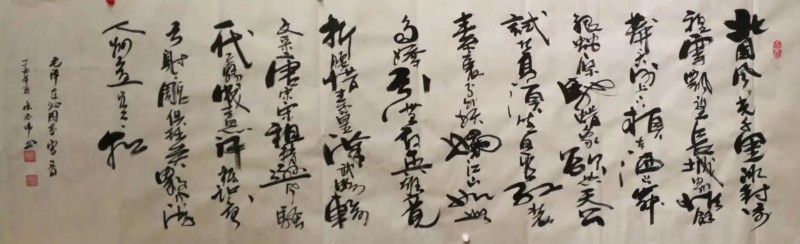 北国风光千里冰封万
里雪飘望长城内外惟馀
莽大河上下顿失滔滔山舞
银蛇原驰蜡象欲与天公
试比高须晴日看红装
素裹分外妖娆江山如此
多娇引无数英雄竞
折腰惜秦皇汉武略输
文采唐宗宋祖稍逊风骚
一代天骄成吉思汗只识弯
弓射雕俱往矣数风流
人物还看今朝
毛泽东沁园春雪